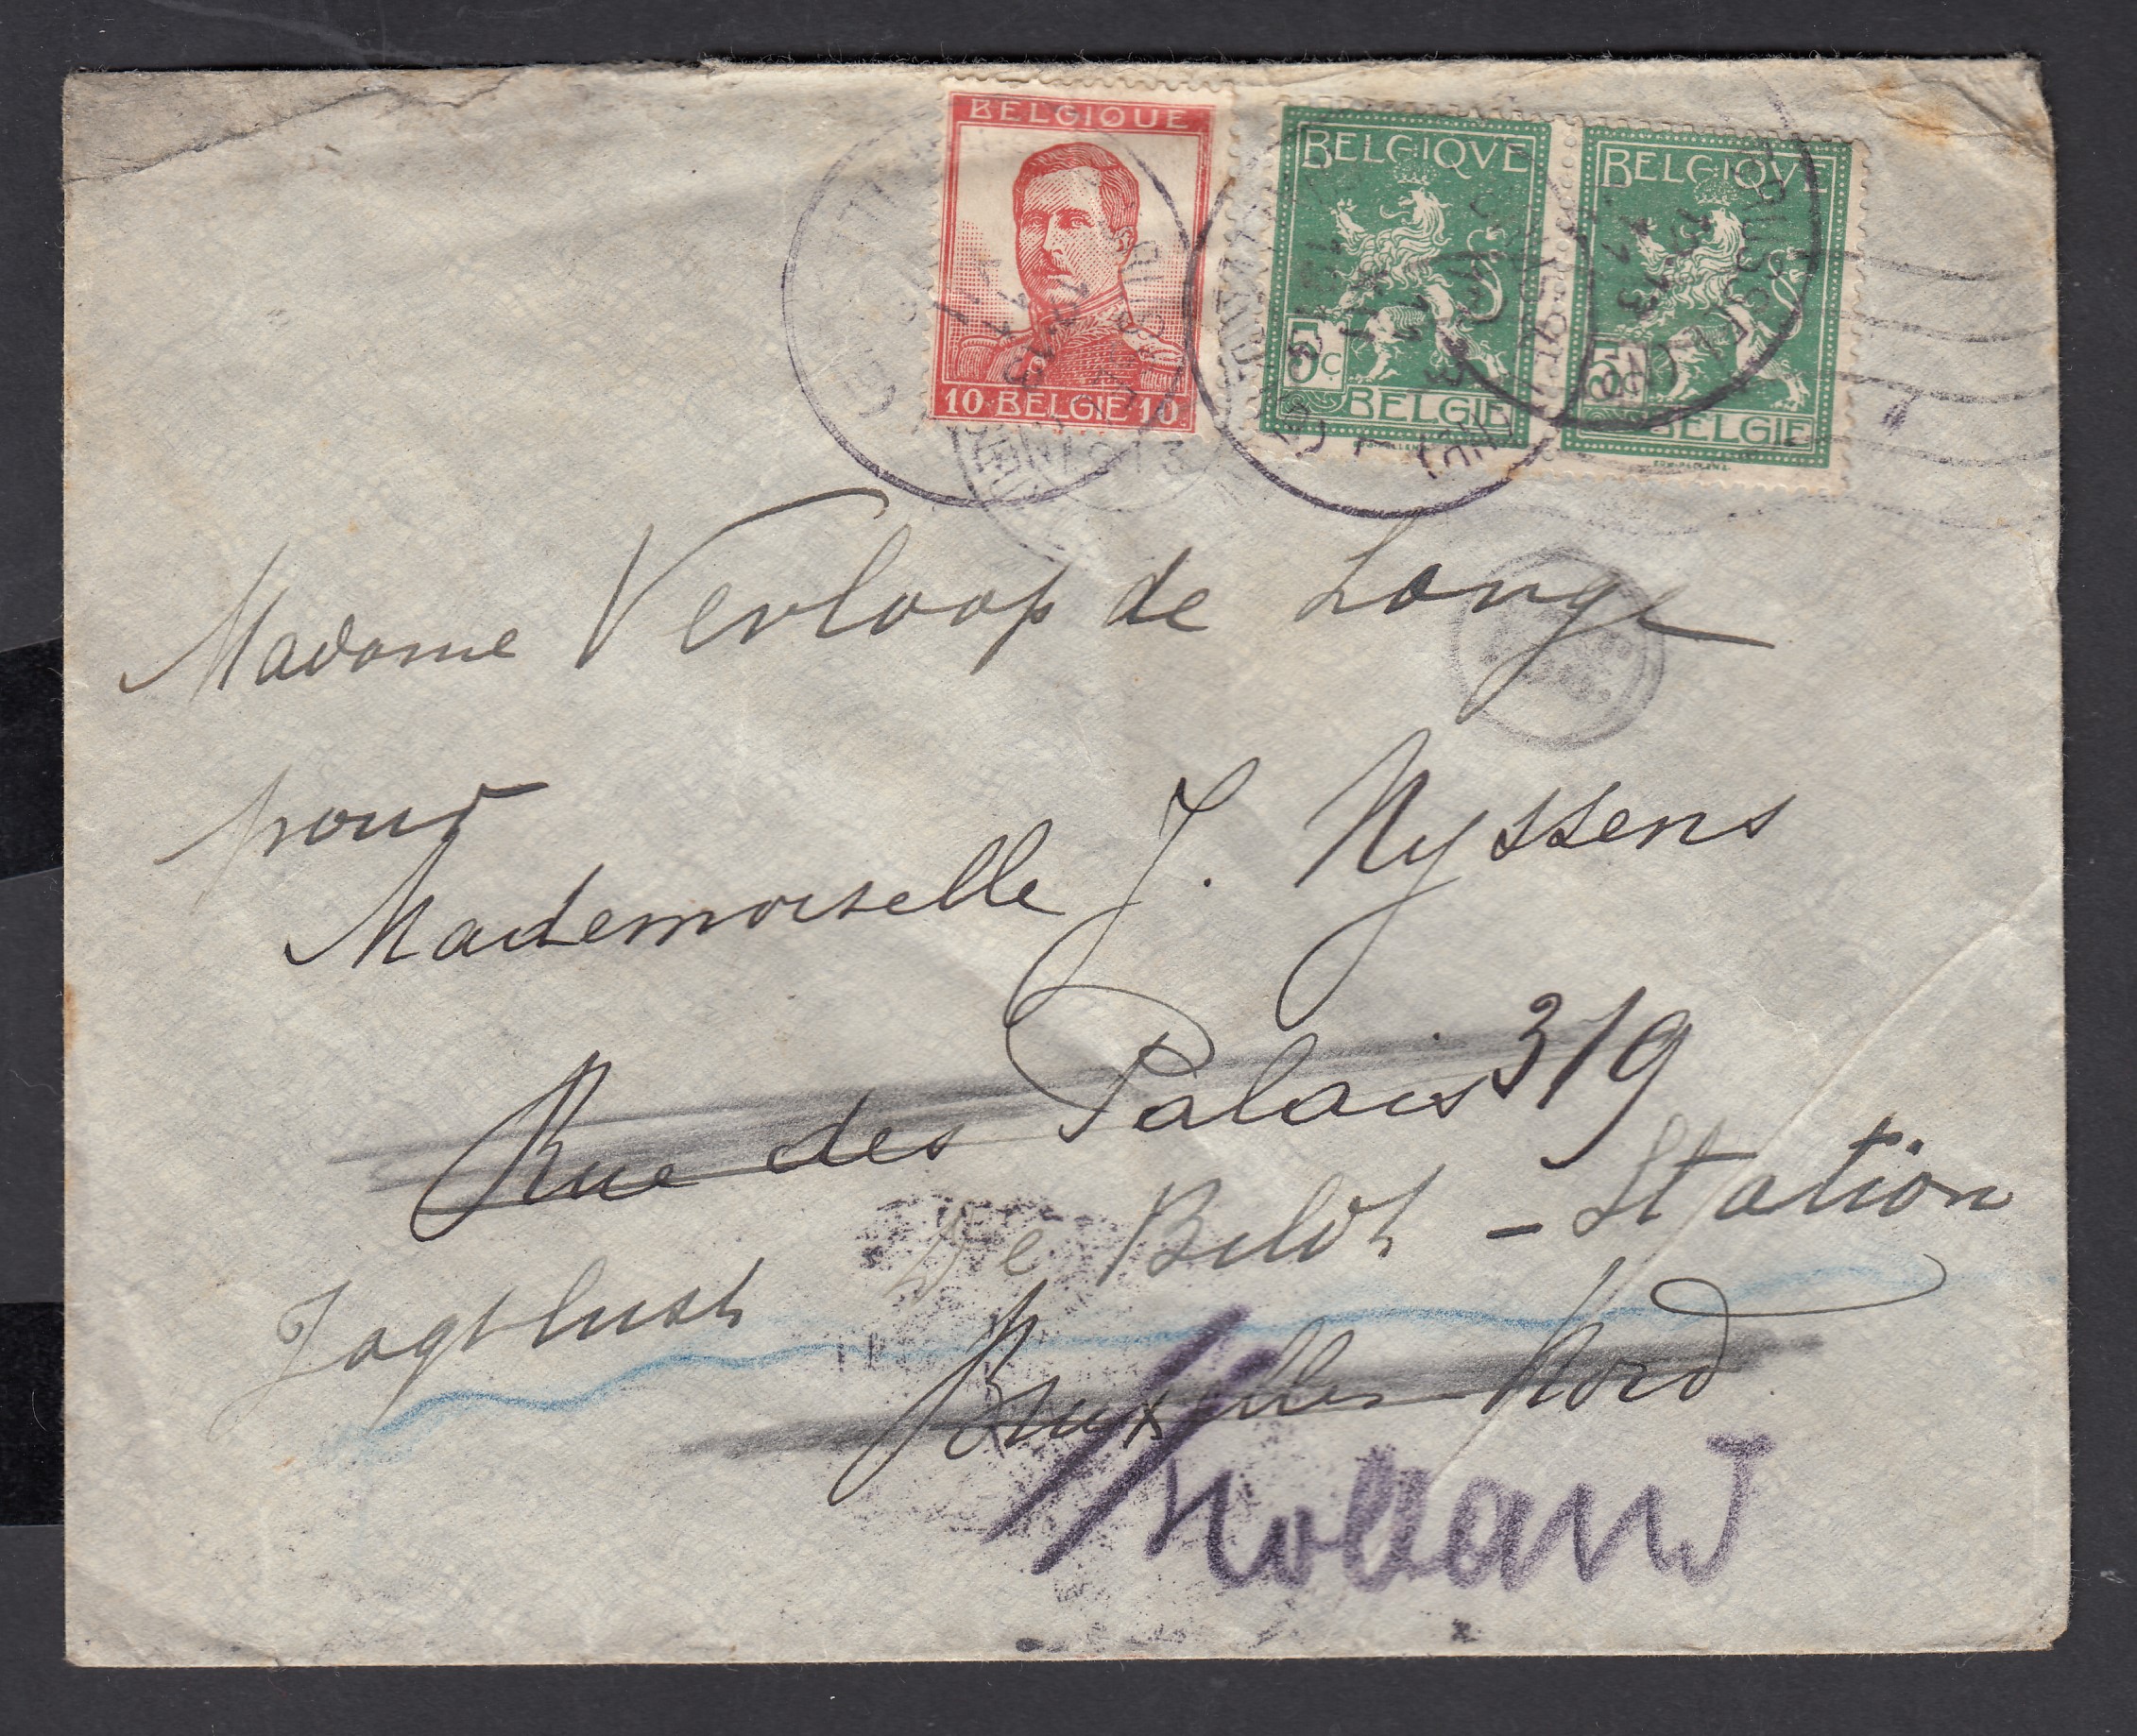 BELGIQUE
10 BELGIE 10
BELGIQVE
5c
BELGIE
BELGIQVE
5
BELGIE
1913
Madame Verloop de Longe
pour
Mademoiselle J. Nyssens
Rue des Palais 319
Jagtlust De Bildt - Station
Bruxelles Nord
Holland